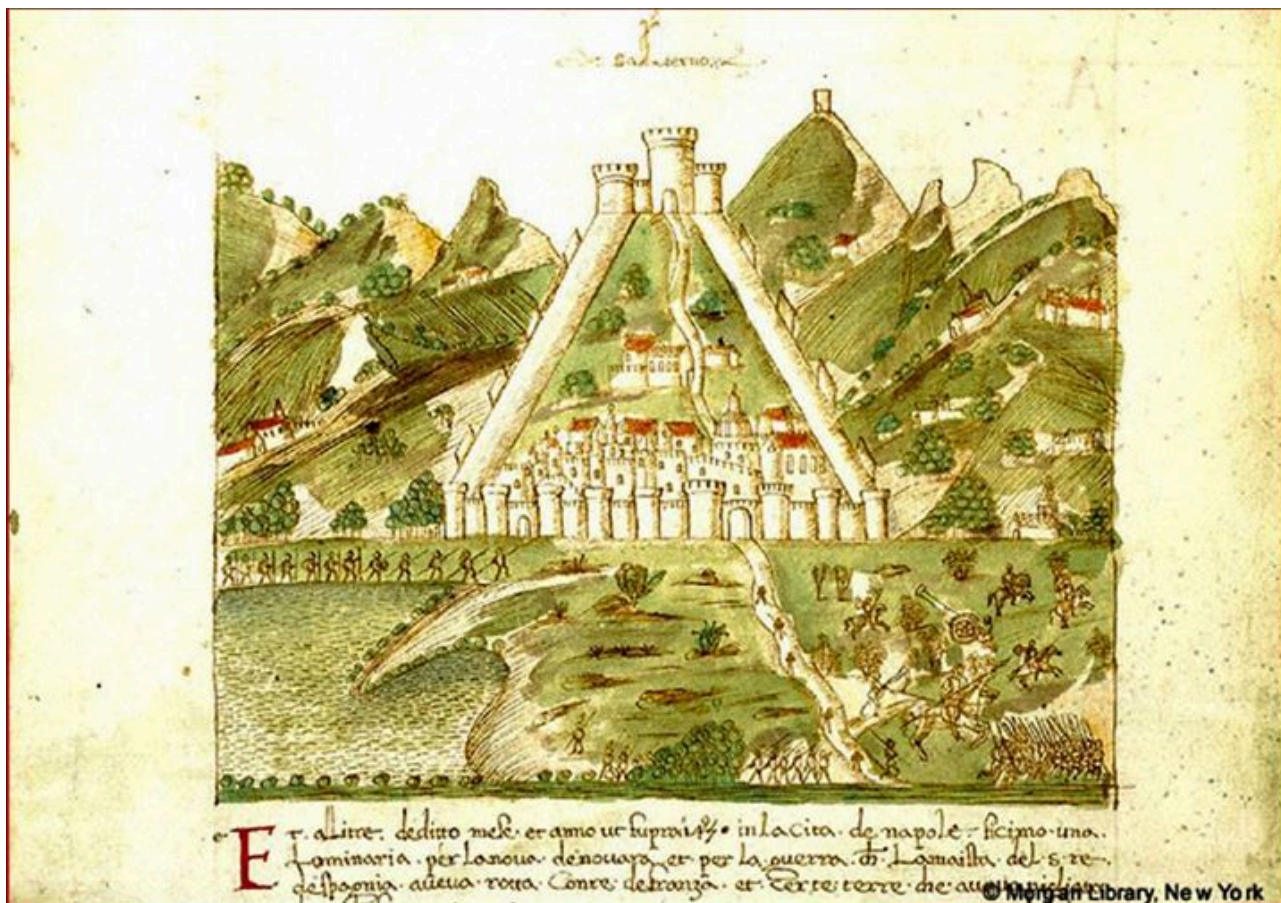 Et. alitre. deditto mese. et anno ut supra in La Cita. de napole. ficimo. una.
Lominaria. per La nova. de novara. et per La. guerra. Lamaista. del. s. re.
despagnia. aveva. rotta. Contre. defranza. et. Certe terre. che
© Morgan Library, New York